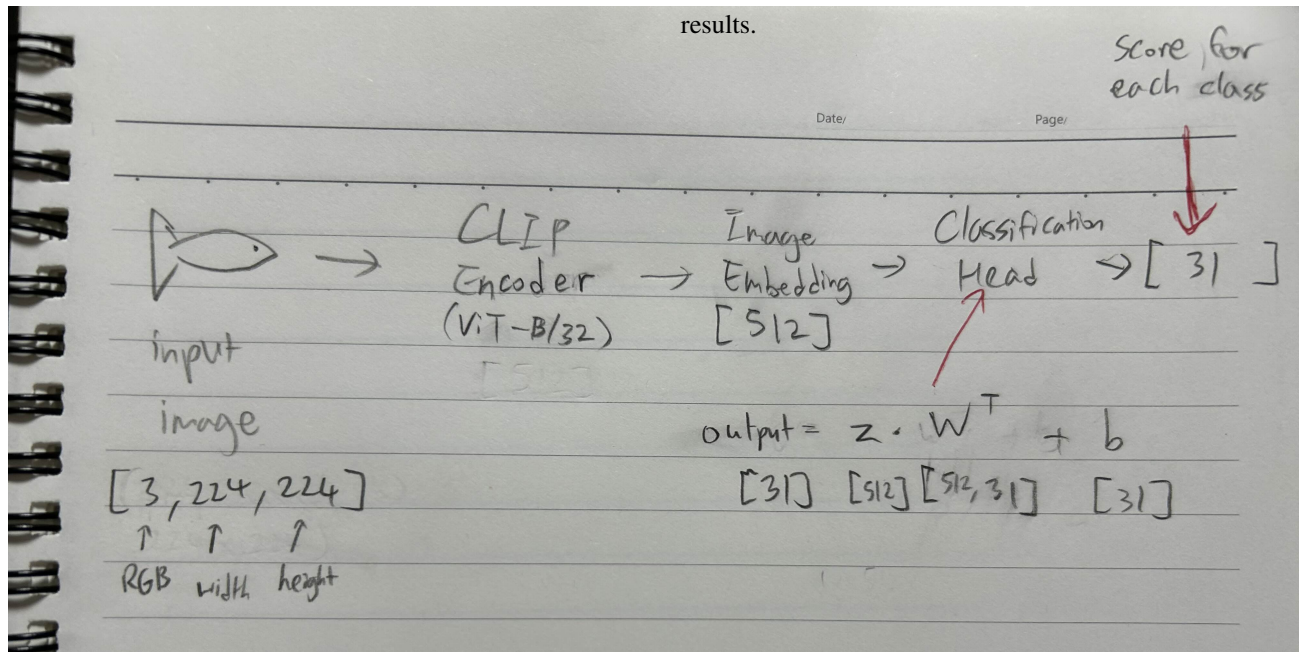 results.
score for
each class
Date/ Page/
CLIP
Encoder
(ViT-B/32)
[512]
Image
Embedding
[512]
Classification
Head
[ 31 ]
input
image
[3, 224, 224]
RGB width height
output = z · W^T + b
[31] [512] [512, 31] [31]